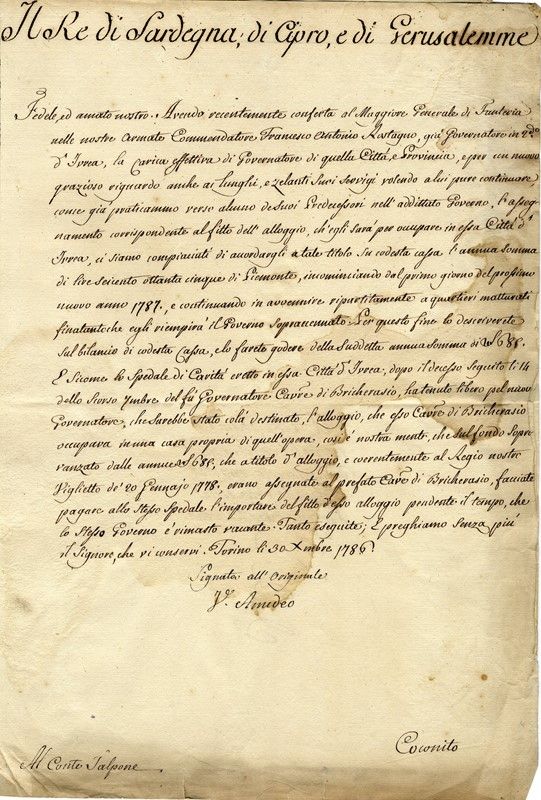 Il Re di Sardegna, di Cipro, e di Gerusalemme
Fedele, ed amato nostro. Avendo recentemente conferta al Maggiore Generale di Fanteria
nelle nostre Armate Commendatore Francesco Antonio Rastagno, già Governatore in 2.do
d'Ivrea, la carica effettiva di Governatore di quella Città, e Provincia, e per un nuovo
grazioso riguardo anche ai lunghi, e zelanti suoi servigj volendo a lui pure continuare,
come già praticammo verso alcuno de suoi Predecessori nell'addittato Governo, l'asseg-
namento corrispondente al fitto dell'alloggio, ch'egli sarà per occupare in essa Città d'
Ivrea, ci siamo compiaciuti di accordargli a tale titolo su codesta cassa l'annua somma
di lire seicento ottanta cinque di Piemonte, incominciando dal primo giorno del prossimo
nuovo anno 1787., e continuando in avvenire ripartitamente a quartieri matturati
finatantoche egli riempirà il Governo sopraccennato. Per questo fine lo descriverete
sul bilancio di codesta Cassa, e lo farete godere della suddetta annua somma di £ 685.
E siccome lo Spedale di Carità eretto in essa Città d'Ivrea, dopo il decesso seguito li 14
dello scorso 7mbre del fù Governatore Cavre di Bricherasio, ha tenuto libero pel nuovo
Governatore, che sarebbe stato colà destinato, l'alloggio, che esso Cavre di Bricherasio
occupava in una casa propria di quell'opera, così è nostra mente, che sul fondo sopra-
vanzato dalle annue £ 685, che a titolo d'alloggio, e coerentemente al Regio nostro
Viglietto de' 20 Gennajo 1778, erano assegnate al prefato Cavre di Bricherasio, facciate
pagare allo stesso Spedale l'importare del fitto d'esso alloggio pendente il tempo, che
lo stesso Governo è rimasto vacante. Tanto eseguite; E preghiamo senza più
il Signore, che vi conservi. Torino li 30 Xmbre 1786.
Signata all'Originale
V.o Amedeo
Coconito
Al Conte Salpone